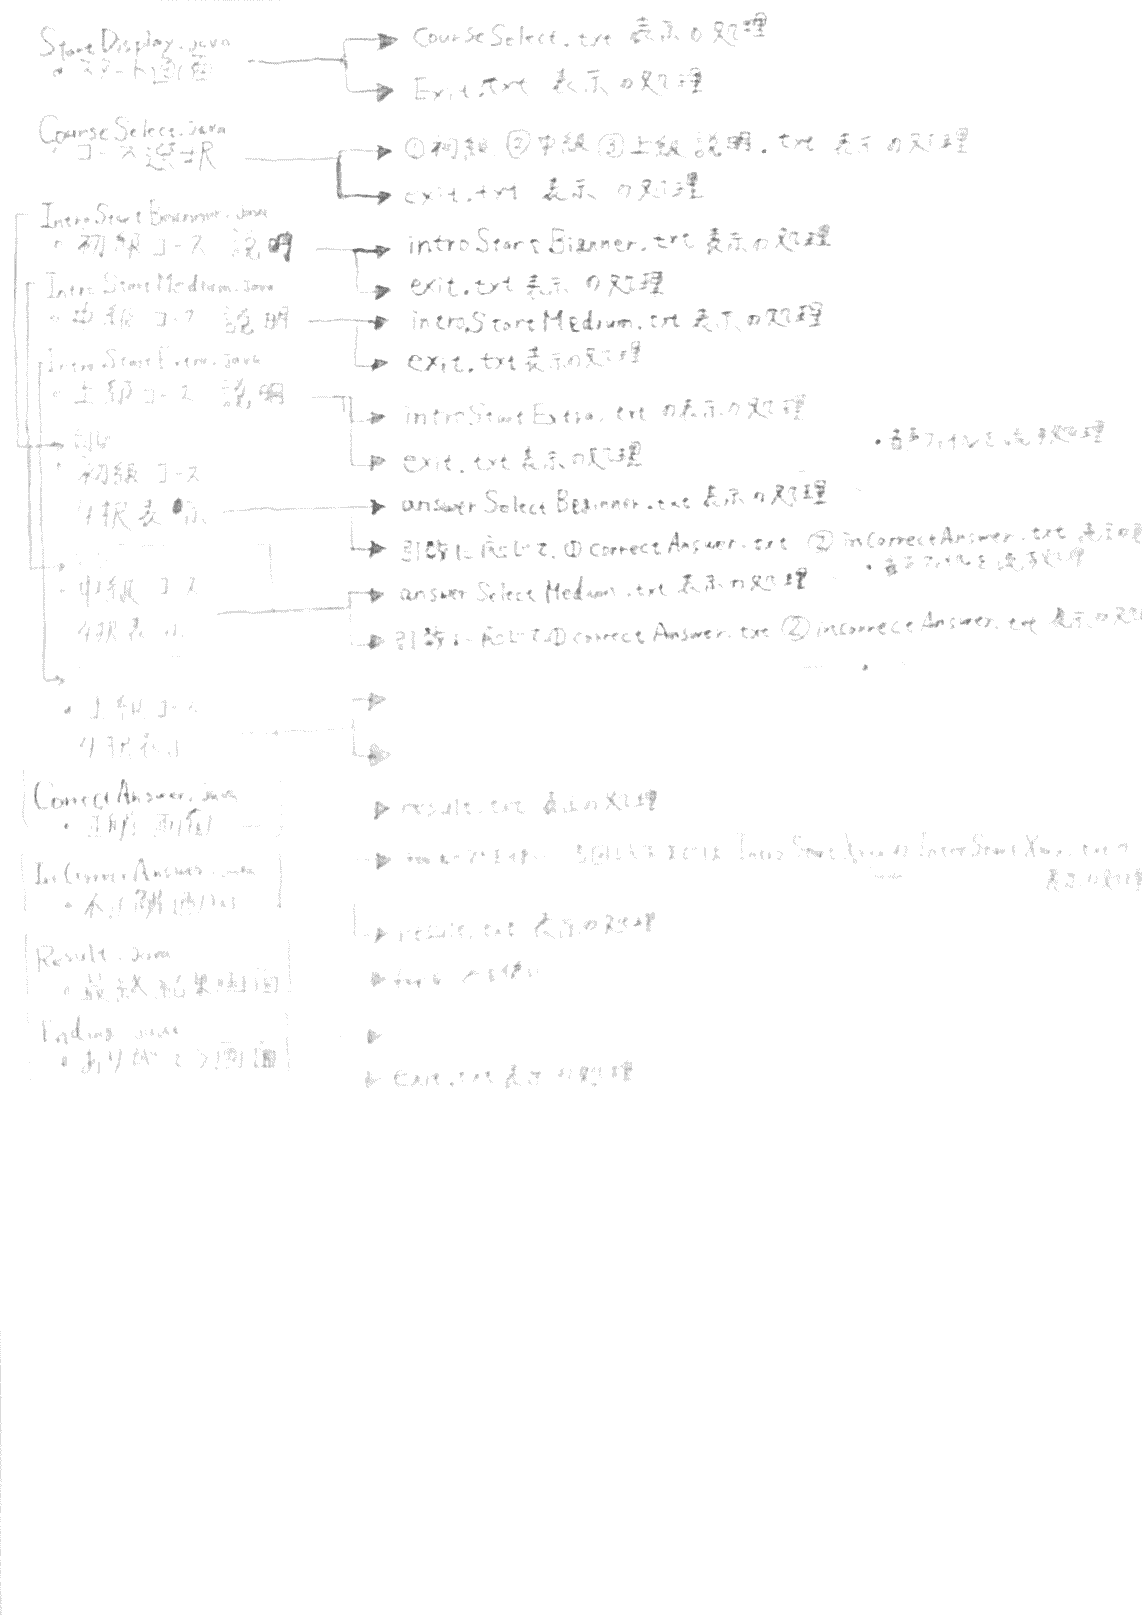 StartDisplay.java
・スタート画面
CourseSelect.txt 表示の処理
Exit.txt 表示の処理
CourseSelect.java
・コース選択
①初級 ②中級 ③上級 説明.txt 表示の処理
exit.txt 表示の処理
IntroStartBeginner.java
・初級コース 説明
introStartBiginner.txt 表示の処理
exit.txt 表示の処理
IntroStartMedium.java
・中級コース 説明
introStartMedium.txt 表示の処理
exit.txt 表示の処理
IntroStartExtra.java
・上級コース 説明
introStartExtra.txt の表示の処理
exit.txt 表示の処理
・音声ファイルを流す処理
・初級コース
4択表示
answerSelectBeginner.txt 表示の処理
引数に応じて、①correctAnswer.txt ②inCorrectAnswer.txt 表示の
・音声ファイルを流す処理
・中級コース
4択表示
answerSelectMedium.txt 表示の処理
引数に応じて①correctAnswer.txt ②incorrectAnswer.txt 表示の処理
・上級コース
4択表示
CorrectAnswer.java
・正解画面
result.txt 表示の処理
InCorrectAnswer.java
・不正解画面
IntroStartXxx.txt の
表示の処理
result.txt 表示の処理
Result.java
・最終結果画面
Ending.java
・ありがとう画面
Exit.txt 表示の処理